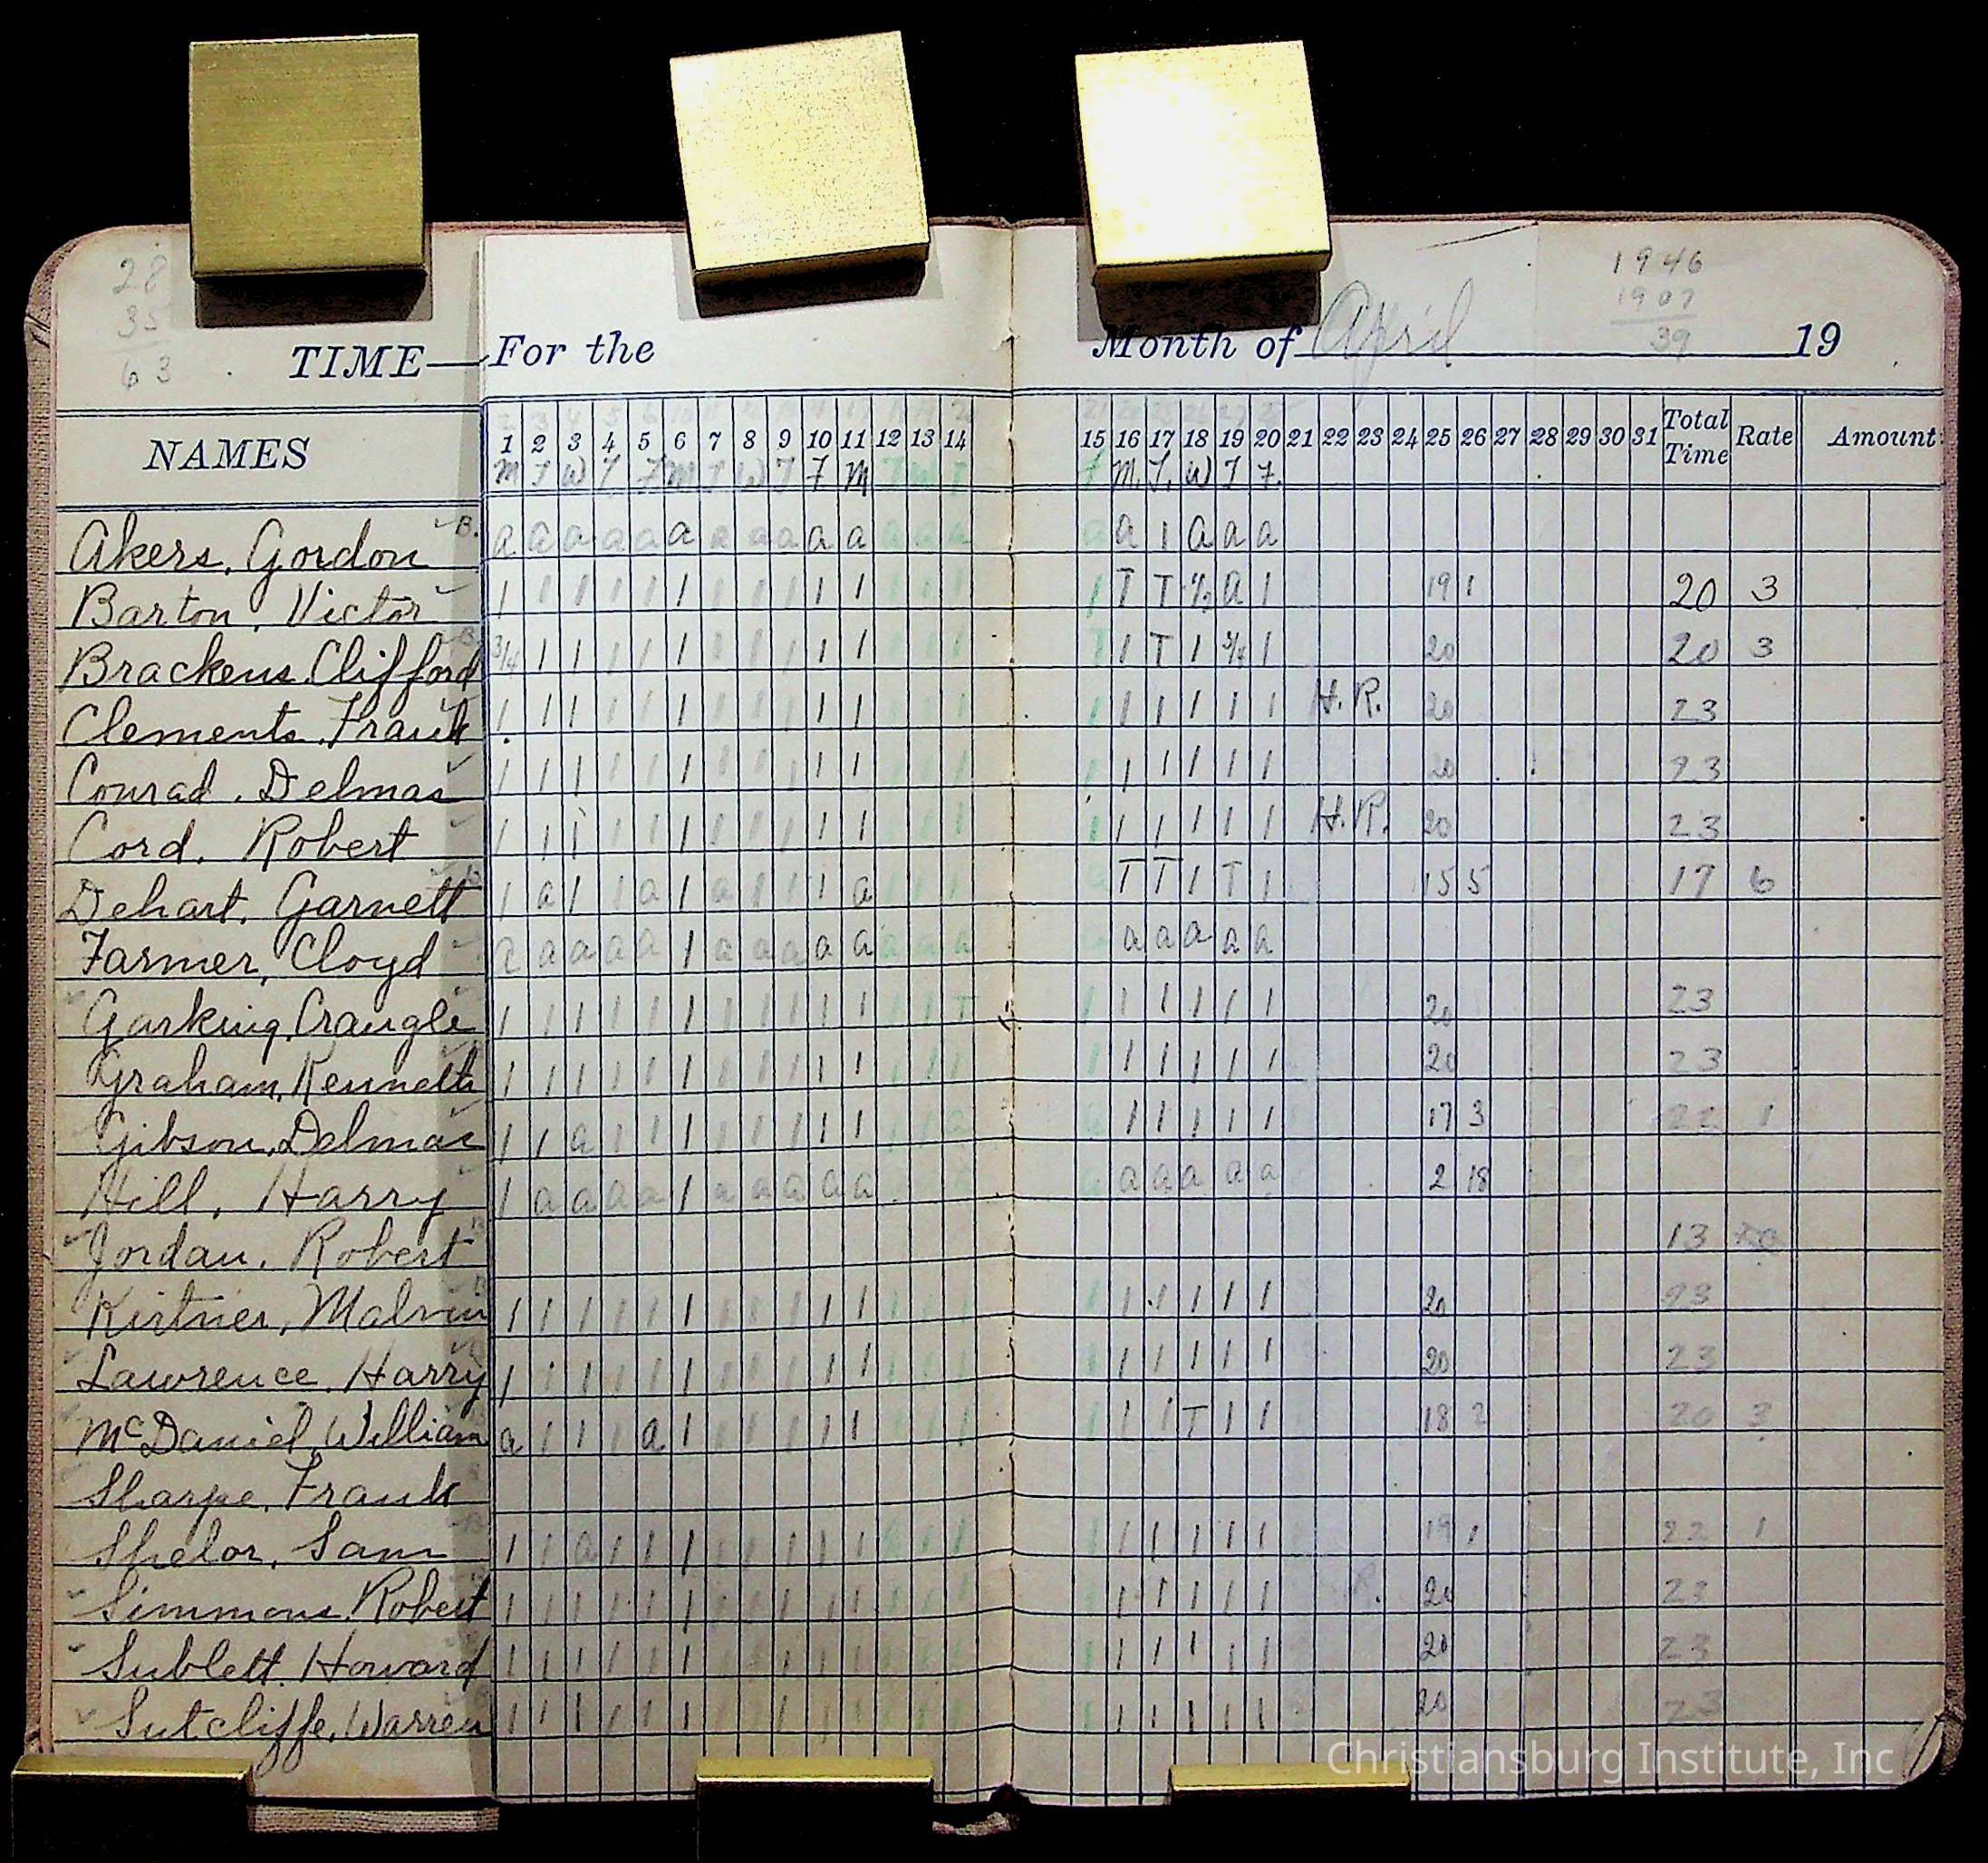 28
35
63
1946
1907
39
TIME—For the Month of April 19
NAMES 1 2 3 4 5 6 7 8 9 10 11 12 13 14 15 16 17 18 19 20 21 22 23 24 25 26 27 28 29 30 31 Total Time Rate Amount
M T W T F M T W T F M T W T F M. T. W T F.
Akers, Gordon B. a a a a a a a a a a a a a a a a 1 a a a
Barton, Victor 1 1 1 1 1 1 1 1 1 1 1 1 1 1 1 T T 1/2 a 1 19 1 20 3
Brackens, Clifford B 3/4 1 1 1 1 1 1 1 1 1 1 1 1 1 T 1 T 1 3/4 1 20 20 3
Clements, Frank 1 1 1 1 1 1 1 1 1 1 1 1 1 1 1 1 1 1 1 1 H. R. 20 23
Conrad, Delmas 1 1 1 1 1 1 1 1 1 1 1 1 1 1 1 1 1 1 1 1 20 23
Cord, Robert 1 1 1 1 1 1 1 1 1 1 1 1 1 1 1 1 1 1 1 1 H.R. 20 23
Dehart, Garnett B 1 a 1 1 a 1 a 1 1 1 a 1 1 1 a T T 1 T 1 15 5 17 6
Farmer, Cloyd a a a a a 1 a a a a a a a a a a a a a a
Garking, Craugle 1 1 1 1 1 1 1 1 1 1 1 1 1 T 1 1 1 1 1 1 20 23
Graham, Kenneth 1 1 1 1 1 1 1 1 1 1 1 1 1 1 1 1 1 1 1 1 20 23
Gibson, Delmas 1 1 a 1 1 1 1 1 1 1 1 1 1 a a 1 1 1 1 1 17 3 22 1
Hill, Harry 1 a a a a 1 a a a a a a a a a a a 2 18
Jordan, Robert B 13
Kirtner, Malvin B 1 1 1 1 1 1 1 1 1 1 1 1 1 1 1 1 1 1 1 1 20 23
Lawrence, Harry 1 1 1 1 1 1 1 1 1 1 1 1 1 1 1 1 1 1 1 1 20 23
McDaniel, William a 1 1 1 a 1 1 1 1 1 1 1 1 1 1 1 1 T 1 1 18 2 20 3
Sharpe, Frank
Shelor, Sam B 1 1 a 1 1 1 1 1 1 1 1 1 1 1 1 1 1 1 1 1 19 1 22 1
Simmons, Robert 1 1 1 1 1 1 1 1 1 1 1 1 1 1 1 1 1 1 1 1 R. 20 23
Sublett, Howard 1 1 1 1 1 1 1 1 1 1 1 1 1 1 1 1 1 1 1 1 20 23
Sutcliffe, Warren 1 1 1 1 1 1 1 1 1 1 1 1 1 1 1 1 1 1 1 1 20 23
Christiansburg Institute, Inc